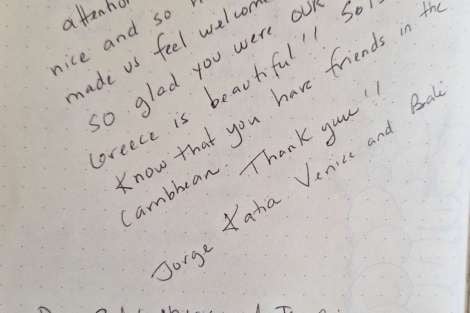 attention
nice and so
made us feel welcom
so glad you were our
Greece is beautiful!! So
Know that you have friends in the
Carribhean. Thank you!!
Jorge Katia Venice and Bali